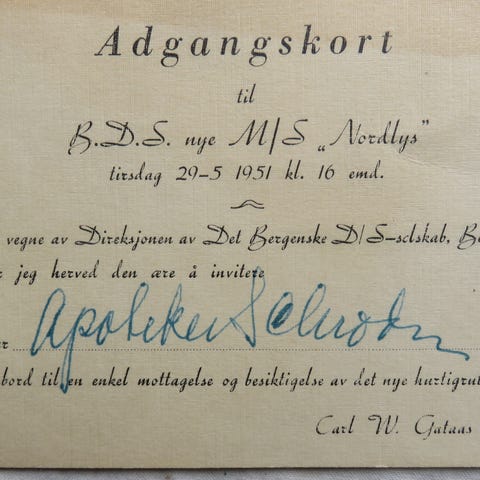 Adgangskort
til
B.D.S. nye M/S „Nordlys”
tirsdag 29-5 1951 kl. 16 emd.
vegne av Direksjonen av Det Bergenske D/S-selskab, Be
r jeg herved den ære å invitere
er Apoteker Schrøder
bord til en enkel mottagelse og besiktigelse av det nye hurtigrut
Carl W. Gataas